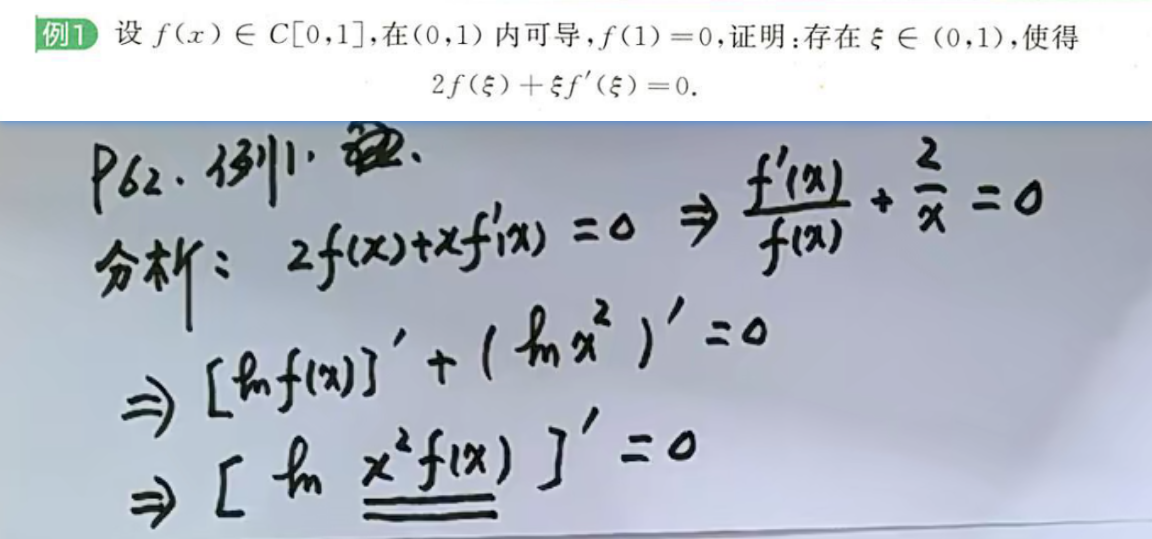 例1 设 f(x) ∈ C[0,1],在(0,1) 内可导,f(1)=0,证明:存在 ξ ∈ (0,1),使得
2f(ξ)+ξf′(ξ)=0.
P62. 例1.
分析: 2f(x)+xf′(x) =0 ⇒ f′(x)/f(x) + 2/x = 0
⇒ [ln f(x)]′ + (ln x²)′ =0
⇒ [ ln x²f(x) ]′ =0